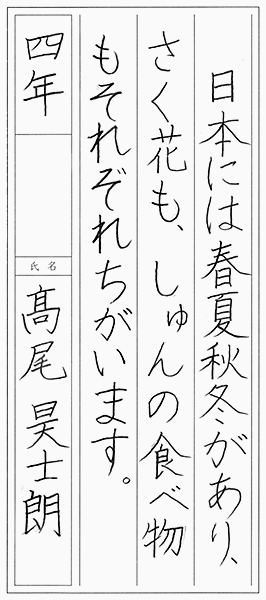 日本には春夏秋冬があり、
さく花も、しゅんの食べ物
もそれぞれちがいます。
四年
氏名
髙尾昊士朗